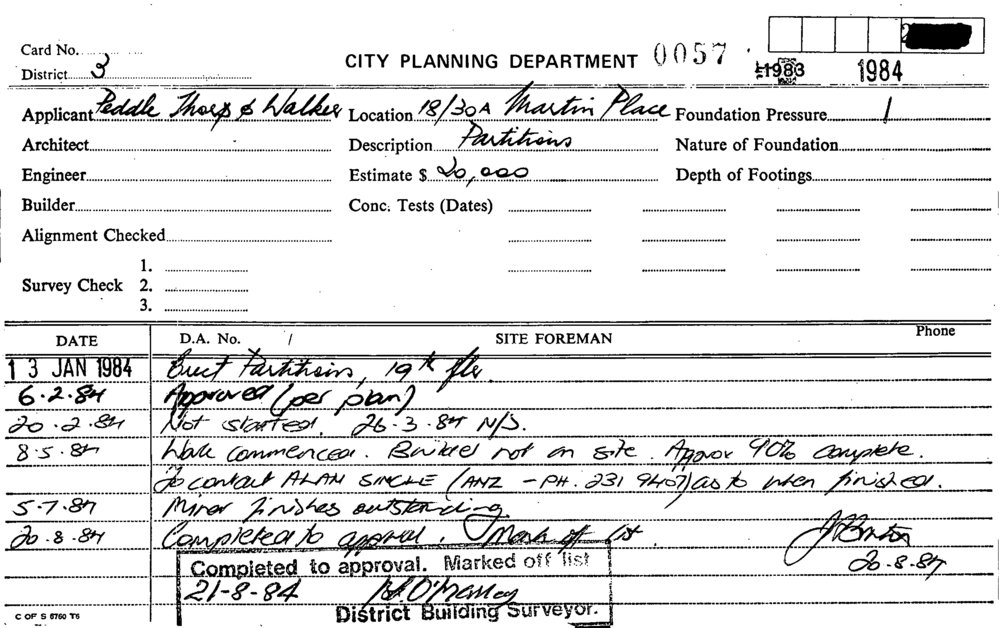 Card No.
District 3
CITY PLANNING DEPARTMENT 0057
1983 1984
Applicant Peddle Thorp & Walker Location 18/30A Martin Place Foundation Pressure
Architect Description Partitions Nature of Foundation
Engineer Estimate $ 20,000 Depth of Footings
Builder Conc. Tests (Dates)
Alignment Checked
1.
Survey Check 2.
3.
DATE D.A. No. SITE FOREMAN Phone
13 JAN 1984 Erect Partitions, 19th flr.
6.2.84 Approved (per plan)
20.2.84 Not started. 26.3.84 N/S.
8.5.84 Work commenced. Builder not on site. Approx 90% complete.
To contact ALAN (ANZ - PH. 231 9407) as to when finished.
5.7.84 Minor finishes outstanding
20.8.84 Completed to approval. Mark off list.
20.8.84
Completed to approval. Marked off list
21-8-84
District Building Surveyor.
C OF S 6760 T6